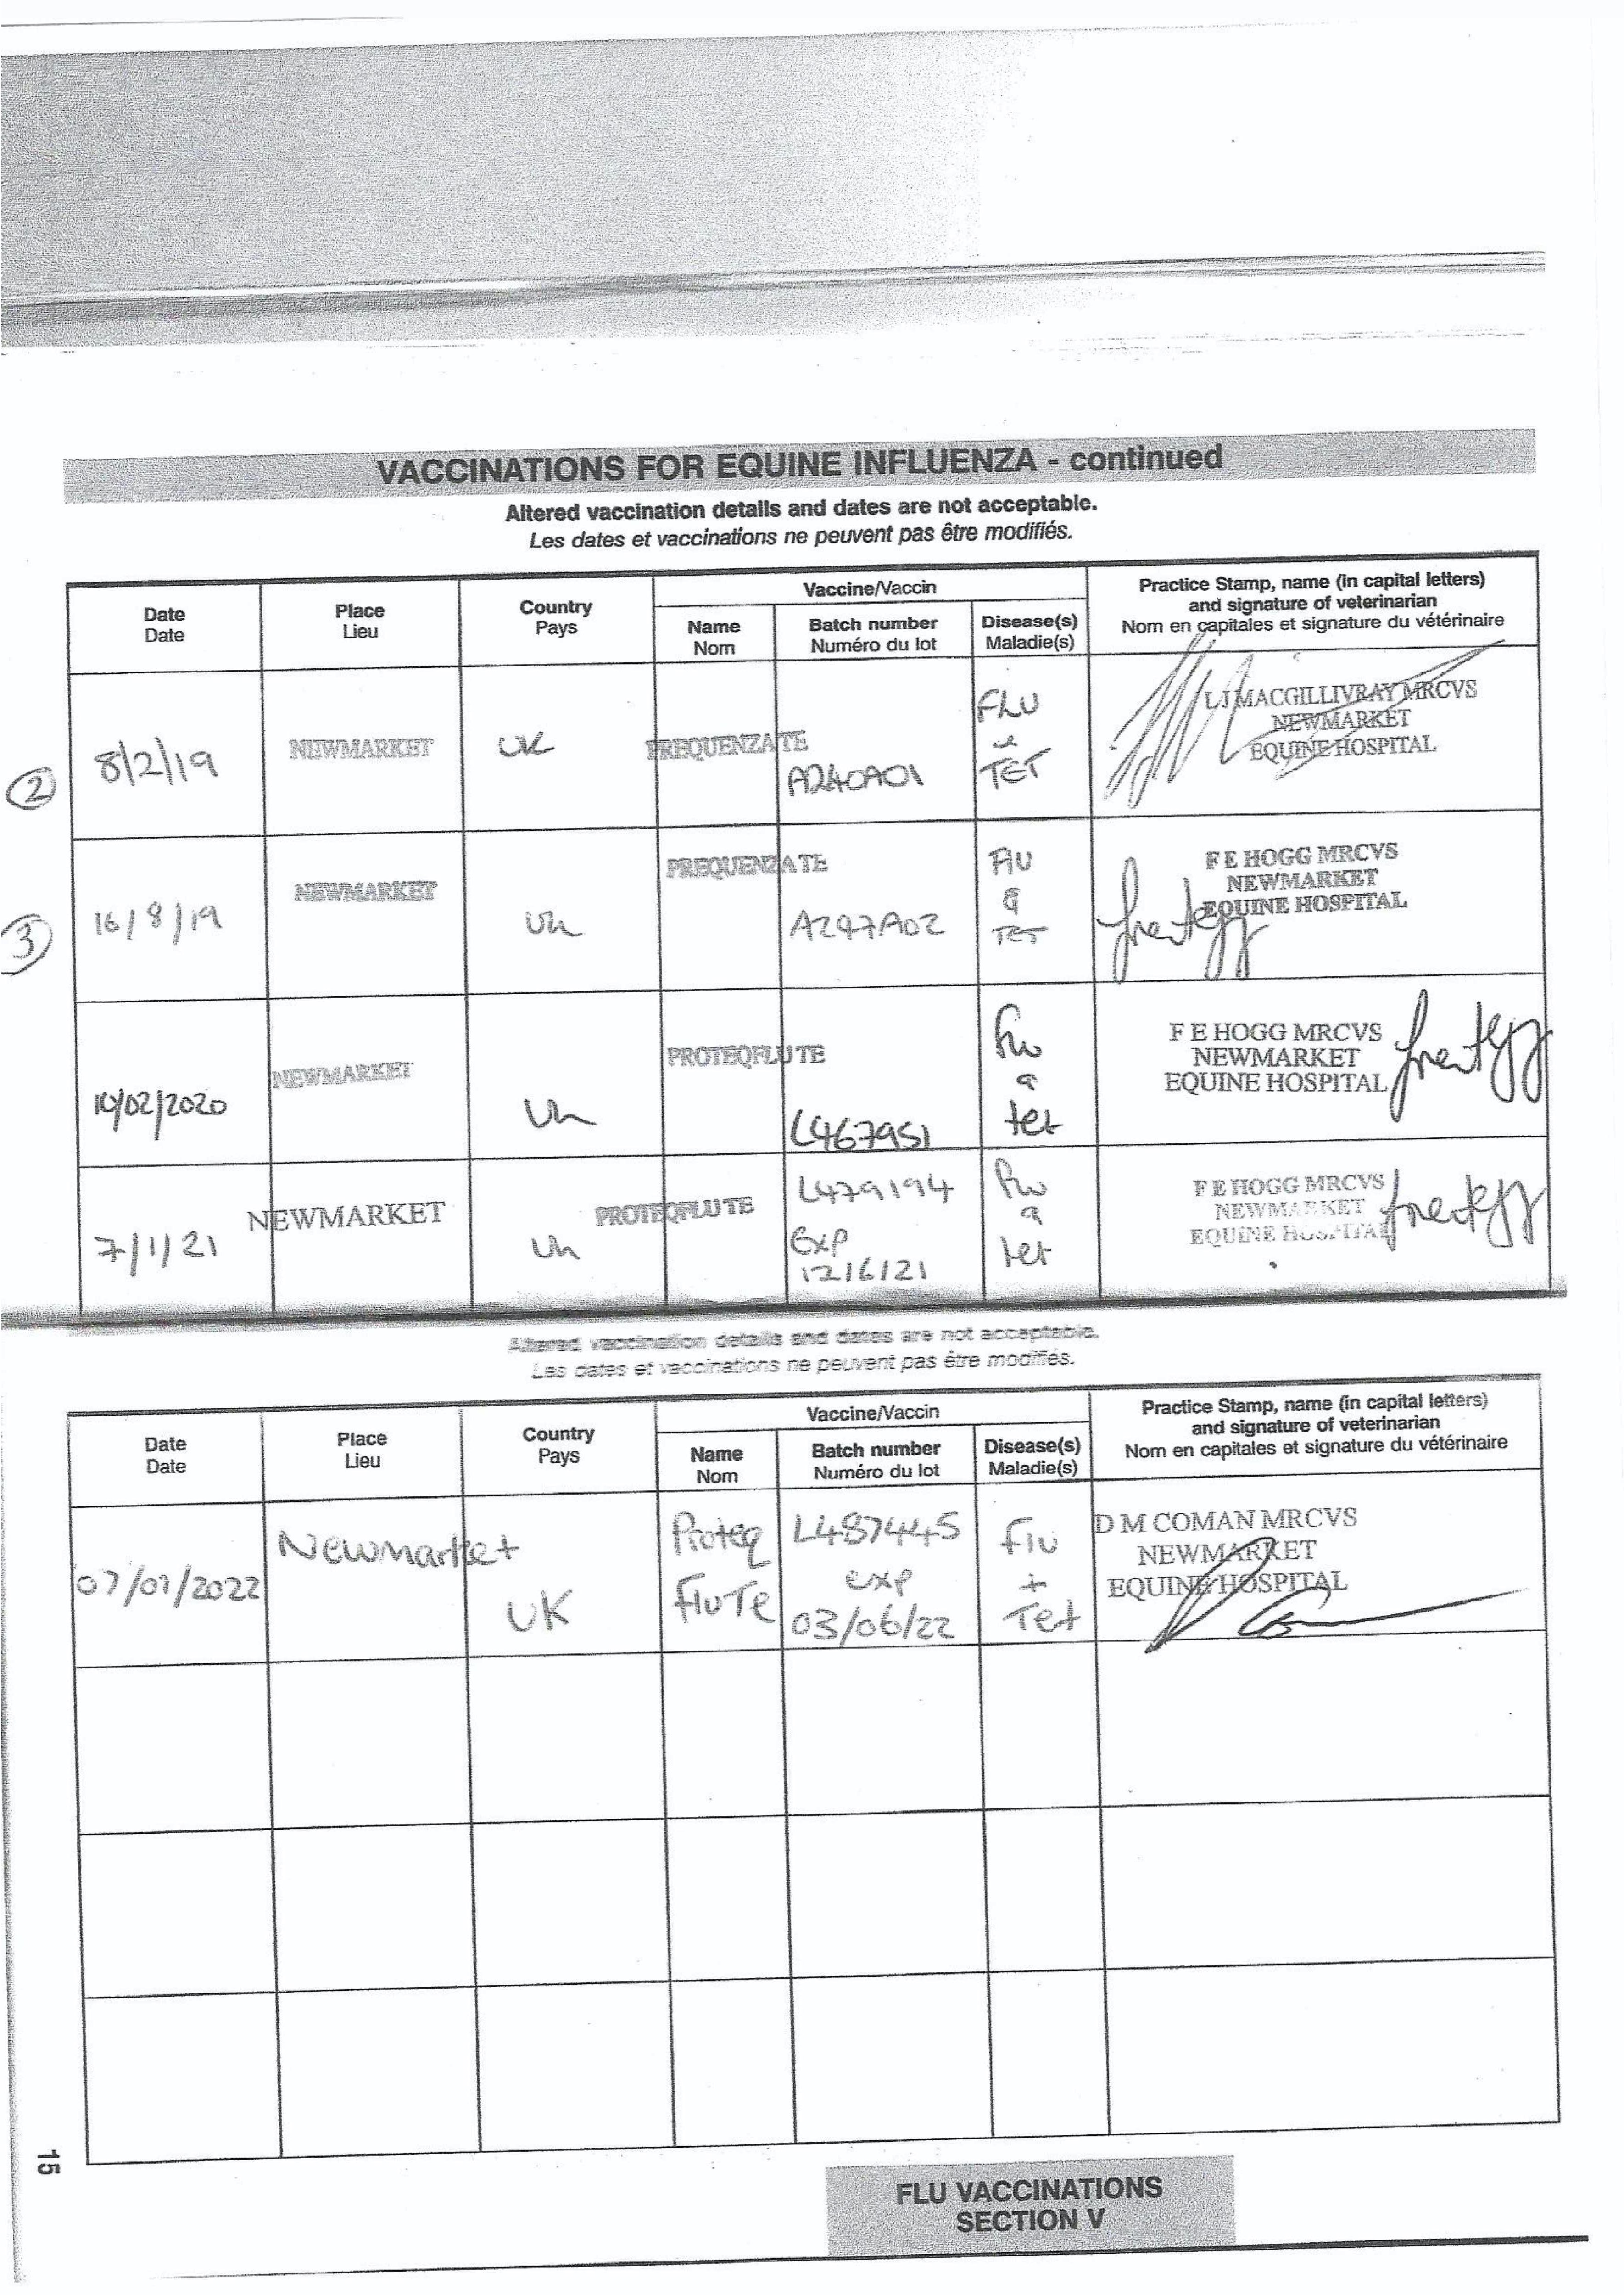 VACCINATIONS FOR EQUINE INFLUENZA - continued
Altered vaccination details and dates are not acceptable.
Les dates et vaccinations ne peuvent pas être modifiés.
Date
Date
Place
Lieu
Country
Pays
Vaccine/Vaccin
Name
Nom
Batch number
Numéro du lot
Disease(s)
Maladie(s)
Practice Stamp, name (in capital letters)
and signature of veterinarian
Nom en capitales et signature du vétérinaire
2
8/2/19
NEWMARKET
UK
PREQUENZA TE
A240A01
FLU
&
TET
L J MACGILLIVRAY MRCVS
NEWMARKET
EQUINE HOSPITAL
3
16/8/19
NEWMARKET
Uk
PREQUENZA TE
A247A02
Flu
&
TET
F E HOGG MRCVS
NEWMARKET
EQUINE HOSPITAL
10/02/2020
NEWMARKET
Uk
PROTEQFLU TE
L467951
Flu
&
tet
F E HOGG MRCVS
NEWMARKET
EQUINE HOSPITAL
7/1/21
NEWMARKET
Uk
PROTEQFLU TE
L479194
Exp
12/6/21
Flu
&
tet
F E HOGG MRCVS
NEWMARKET
EQUINE HOSPITAL
Altered vaccination details and dates are not acceptable.
Les dates et vaccinations ne peuvent pas être modifiés.
Date
Date
Place
Lieu
Country
Pays
Vaccine/Vaccin
Name
Nom
Batch number
Numéro du lot
Disease(s)
Maladie(s)
Practice Stamp, name (in capital letters)
and signature of veterinarian
Nom en capitales et signature du vétérinaire
07/01/2022
Newmarket
UK
Proteq
FluTe
L487445
exp
03/06/22
Flu
+
Tet
D M COMAN MRCVS
NEWMARKET
EQUINE HOSPITAL
15
FLU VACCINATIONS
SECTION V